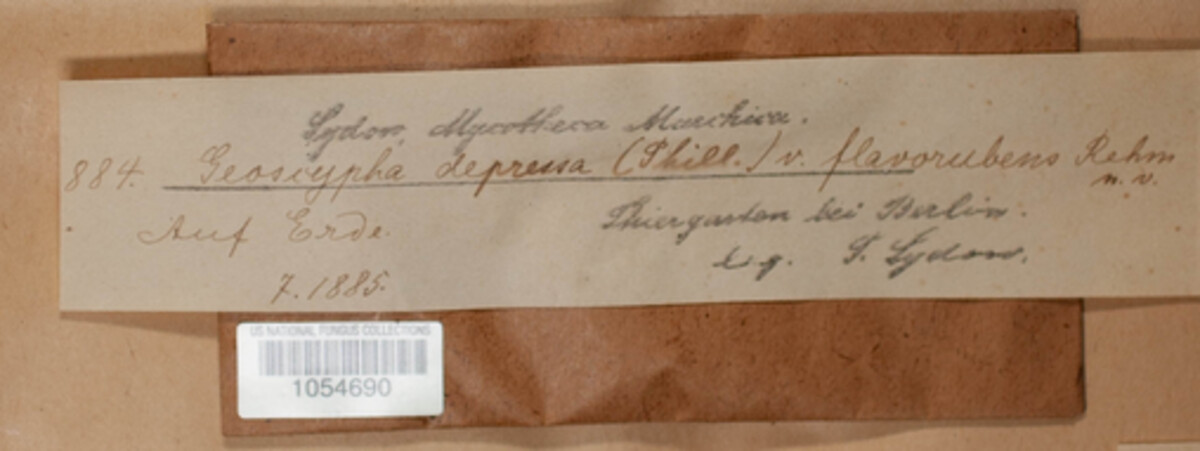 Sydow, Mycotheca Marchica.
884. Geoscypha depressa (Phill.) v. flavorubens Rehm
n. v.
Auf Erde.
Thiergarten bei Berlin.
7. 1885.
leg. P. Sydow.
US NATIONAL FUNGUS COLLECTIONS
1054690